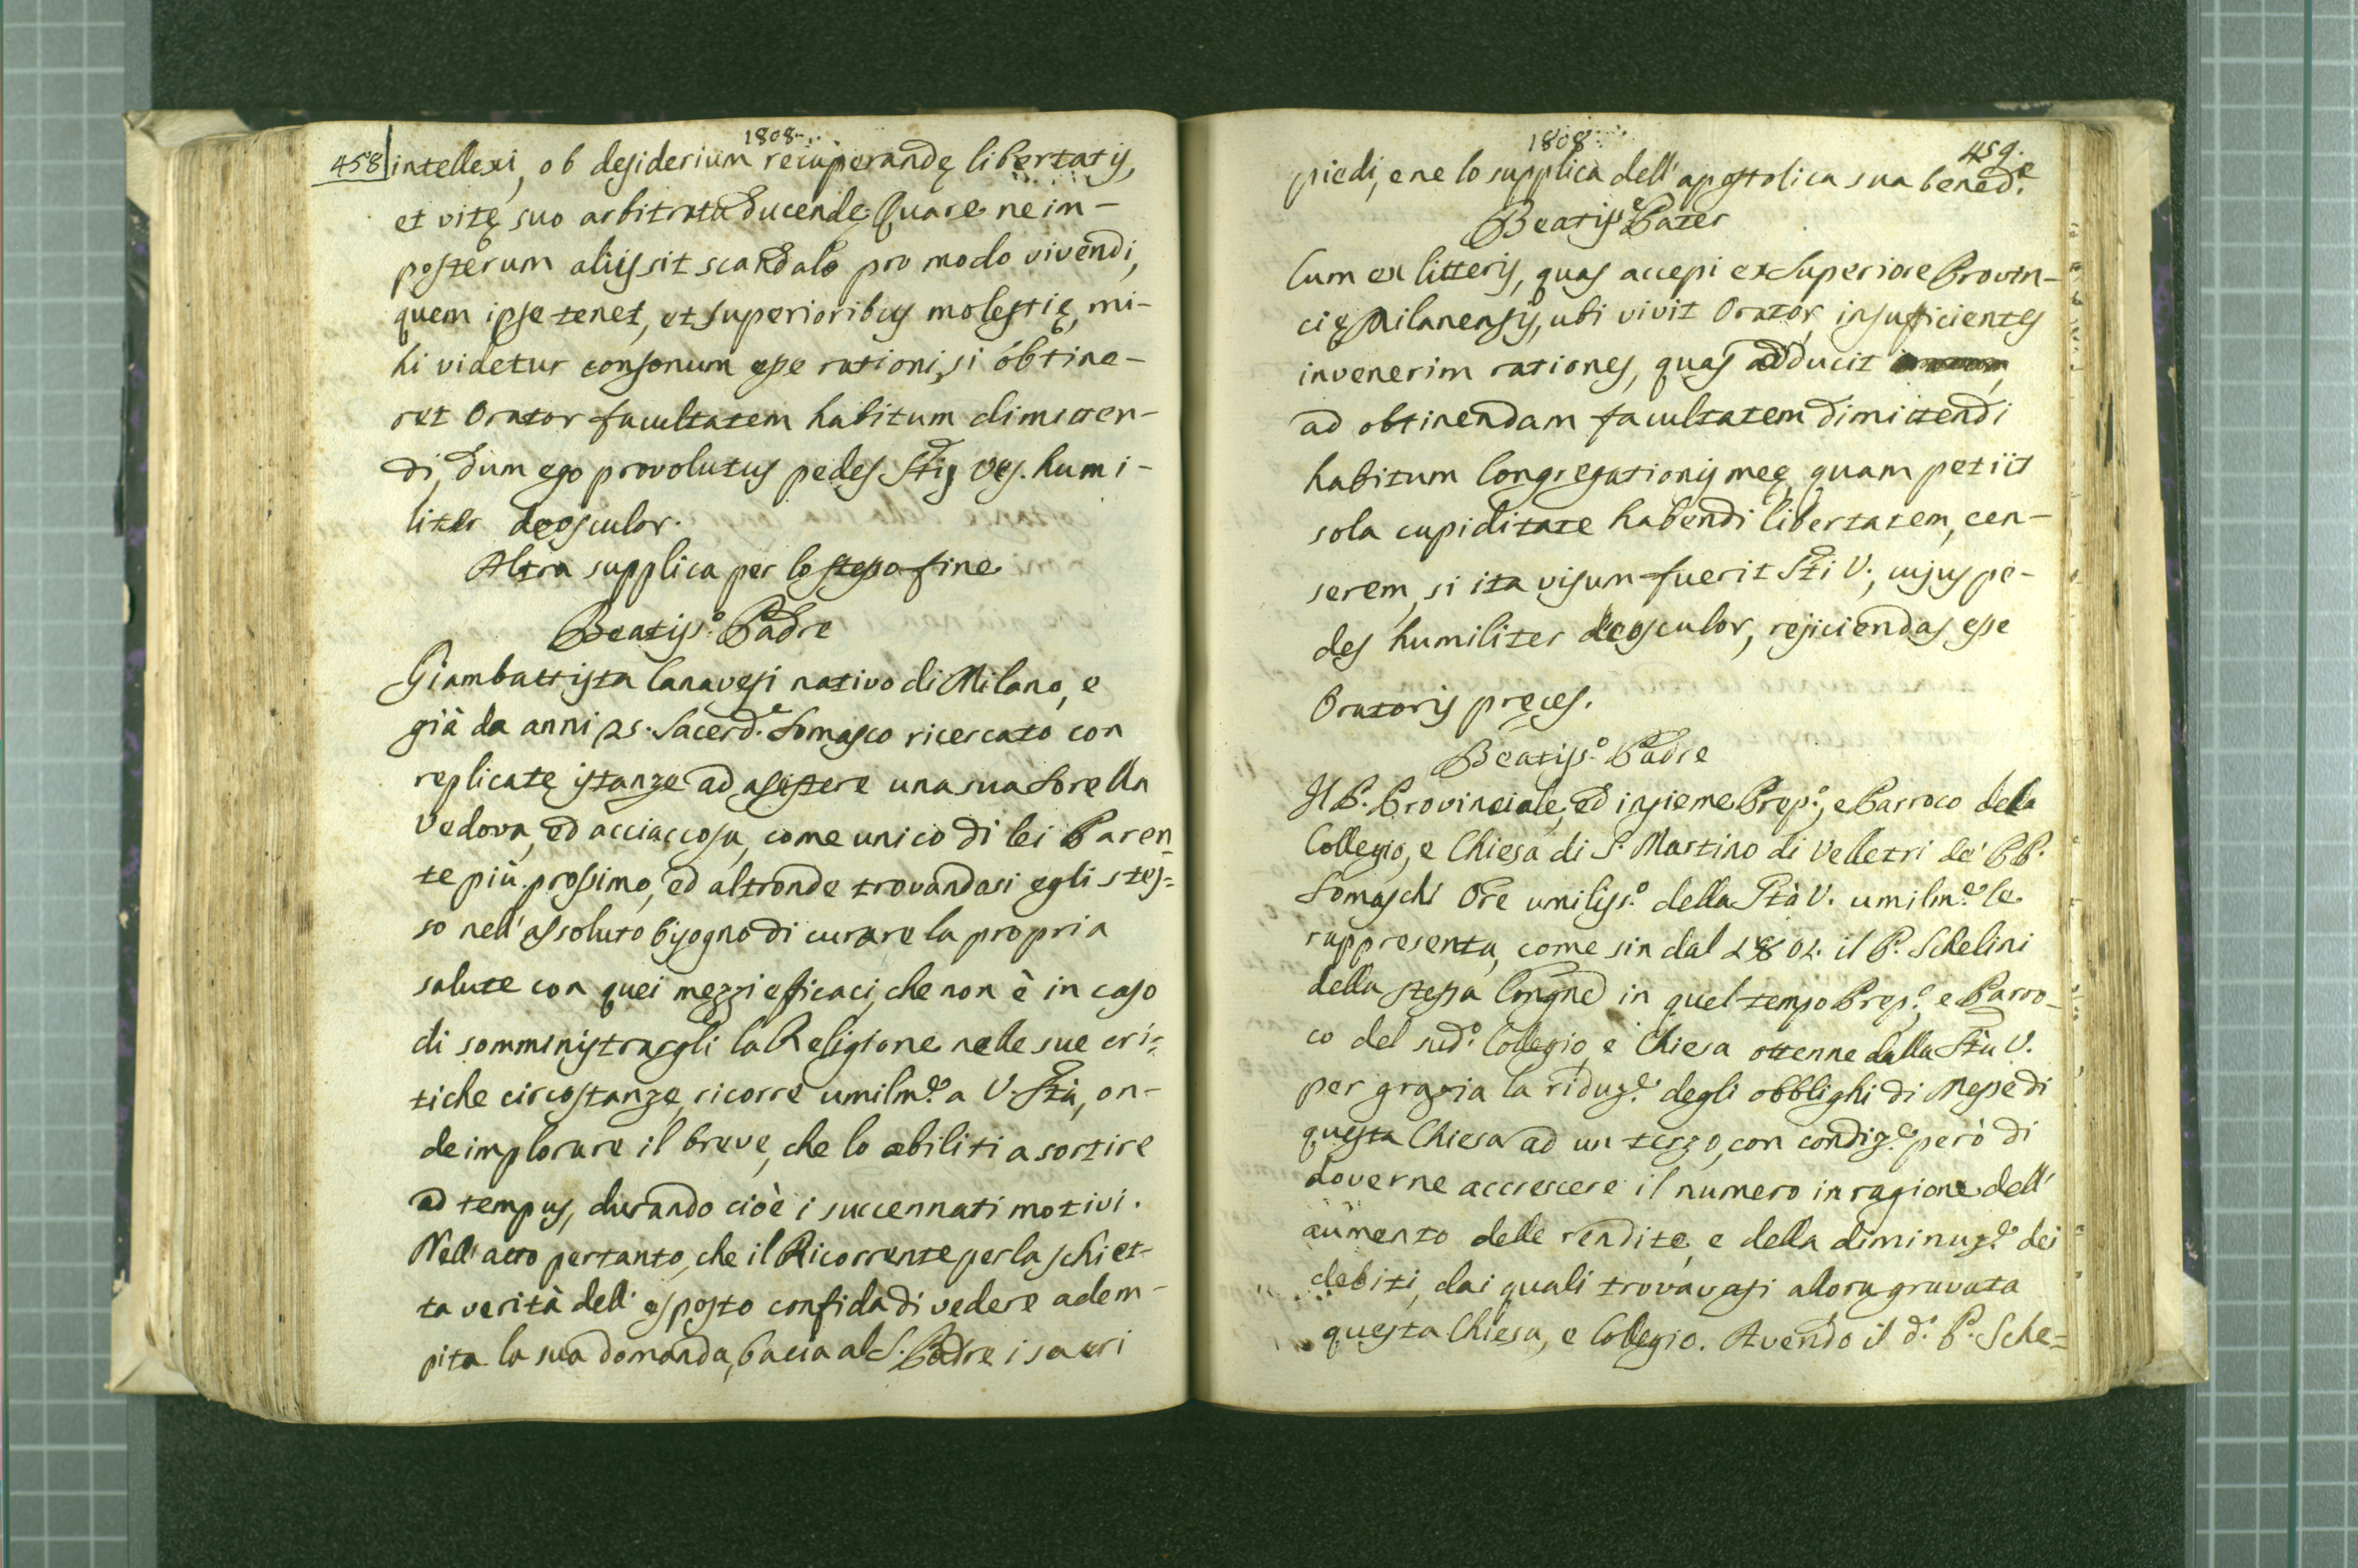 1808.
458 intellexi, ob desiderium recuperandę libertatis,
et vitę suo arbitratu ducendę. Quare ne im-
posterum aliis sit scandalo pro modo vivendi,
quem ipse tenet, et superioribus molestię, mi-
hi videtur consonum esse rationi, si obtine-
ret Orator facultatem habitum dimitten-
di, dum ego provolutus pedes Stis Ves. humi-
liter deosculor.
Altra supplica per lo stesso fine
Beatiss.º Padre
Giambattista Canavesi nativo di Milano, e
già da anni 25. Sacerd.e Somasco ricercato con
replicate istanze ad assistere una sua Sorella
Vedova, ed acciaccosa, come unico di lei Paren-
te più prossimo, ed altronde trovandosi egli stes=
so nell'assoluto bisogno di curare la propria
salute con quei mezzi eficaci, che non è in caso
di somministrargli la Religione nelle sue cri=
tiche circostanze, ricorre umilm.e a V. Stà, on-
de implorare il breve, che lo abiliti a sortire
ad tempus, durando cioè i succennati motivi.
Nell'atto pertanto, che il Ricorrente per la schiet-
ta verità dell'esposto confida di vedere adem-
pita la sua domanda, bacia al S. Padre i sacri
1808.
459.
piedi, e ne lo supplica dell'apostolica sua bened.e
Beatiss.e Pater
Cum ex litteris, quas accepi ex Superiore Provin-
cię Milanensis, ubi vivit Orator, insuficientes
invenerim rationes, quas adducit
ad obtinendam facultatem dimittendi
habitum Congregationis meę, quam petiit
sola cupiditate habendi libertatem, cen-
serem, si ita visum fuerit Sti V., cujus pe-
des humiliter deosculor, rejiciendas esse
Oratoris pręces.
Beatiss.º Padre
Il P. Provinciale, ed insieme Prep.º, e Parroco della
Collegio, e Chiesa di S. Martino di Velletri de' PP.
Somaschi Ore umiliss.º della Stà V. umilm.e le
rappresenta, come sin dal 1802. il P. Schelini
della stessa Congne in quel tempo Prep.º, e Parro-
co del sud.º Collegio, e Chiesa ottenne dalla Stà V.
per grazia la riduz.e degli obblighi di Messe di
questa Chiesa ad un terzo, con condiz.e però di
doverne accrescere il numero in ragione dell'
aumento delle rendite, e della diminuz.e dei
debiti, dai quali trovavasi allora gravata
questa Chiesa, e Collegio. Avendo il d.º P. Sche=